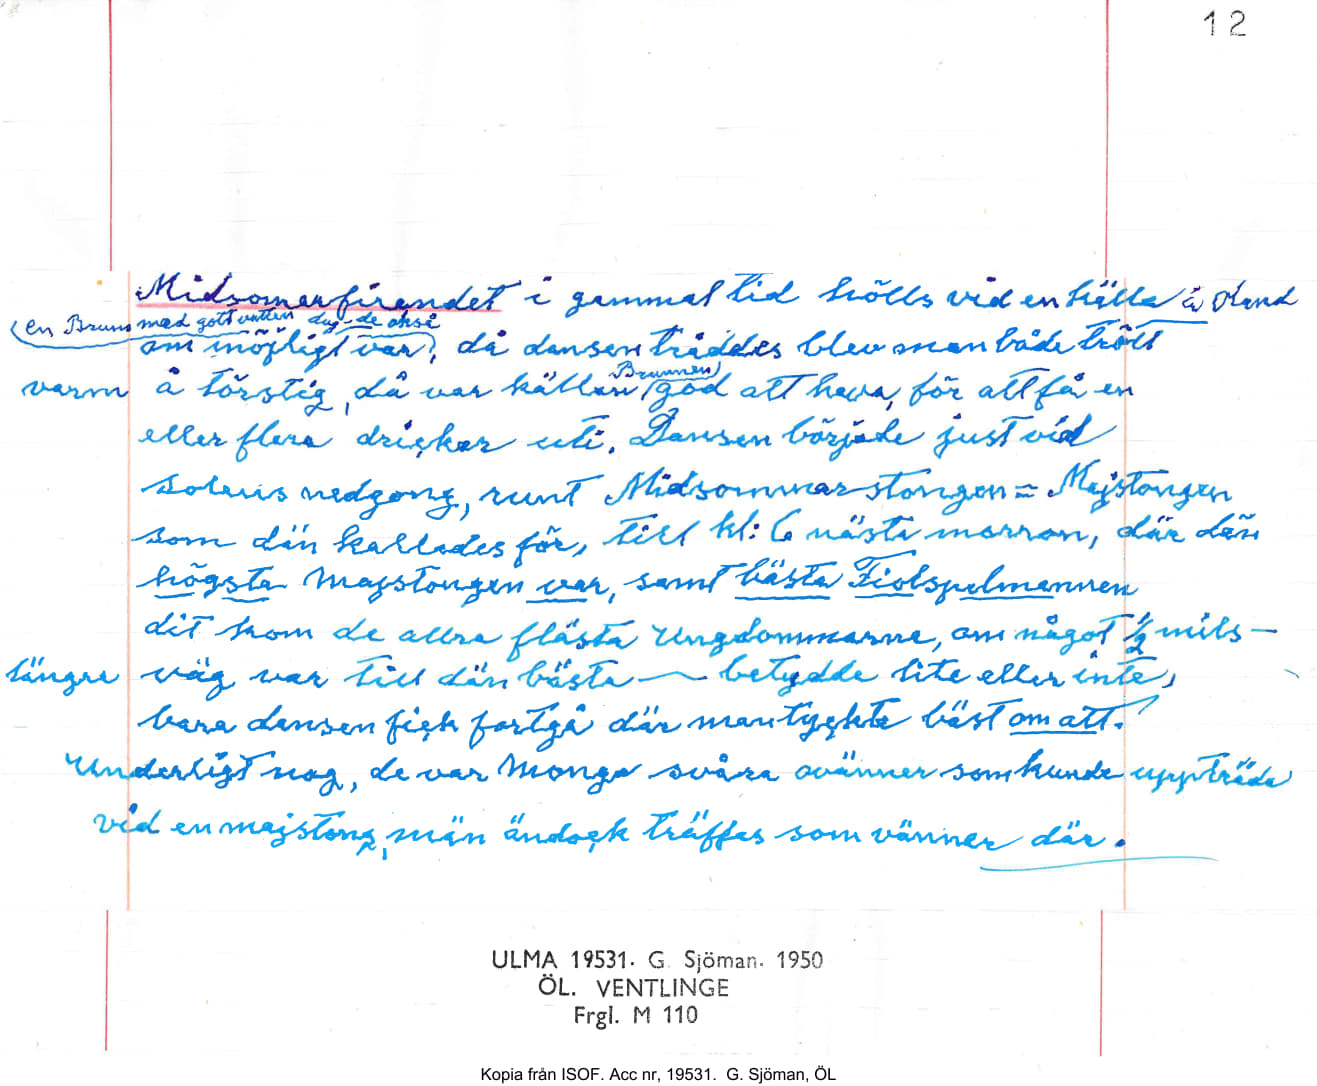 12
Midsomarfirandet i gammal tid hölls vid en källa å Öland
(en Brunn med gott vatten dug-de också
om möjligt var), då dansen tråddes blev man både trött
varm å törstig, då var källan (Brunnen) god att hava, för att få en
eller flera drickar uti. Dansen började just vid
solens nedgong, runt Midsommarstongen = Majstongen
som dän kallades för, till kl: 6 nästa morron, där dän
högsta Majstongen var, samt bästa Fiolspelmannen
dit kom de allra flästa Ungdommarne, om något ½ mils-
längre väg var till dän bästa — betydde lite eller inte,
bara dansen fick fortgå där man tyckte bäst om att.
Underligt nog, de var Monga svåra ovänner som kunde uppträda
vid en majstong, män ändock träffas som vänner där.
ULMA 19531. G. Sjöman. 1950
ÖL. VENTLINGE
Frgl. M 110
Kopia från ISOF. Acc nr, 19531. G. Sjöman, ÖL